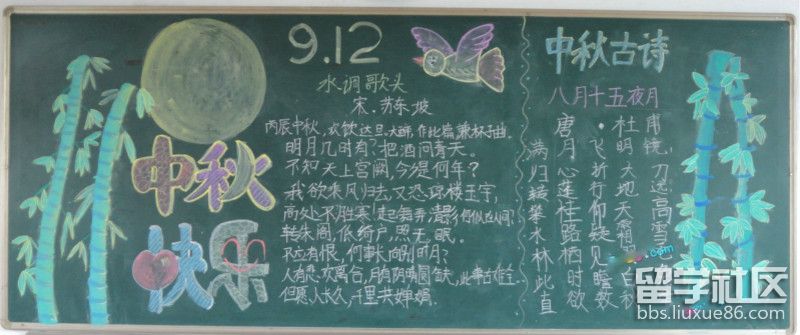 9.12
中秋
快乐
水调歌头
宋.苏东坡
丙辰中秋,欢饮达旦,大醉,作此篇,兼怀子由。
明月几时有?把酒问青天。
不知天上宫阙,今夕是何年?
我欲乘风归去,又恐琼楼玉宇,
高处不胜寒!起舞弄清影,何似在人间?
转朱阁,低绮户,照无眠。
不应有恨,何事长向别时圆?
人有悲欢离合,月有阴晴圆缺,此事古难全。
但愿人长久,千里共婵娟。
中秋古诗
八月十五夜月
唐·杜甫
满月飞明镜,
归心折大刀
转蓬行地远
攀桂仰天高
水路疑霜雪
林栖见羽
此时瞻白
直欲数秋
留学社区
bbs.liuxue86.com